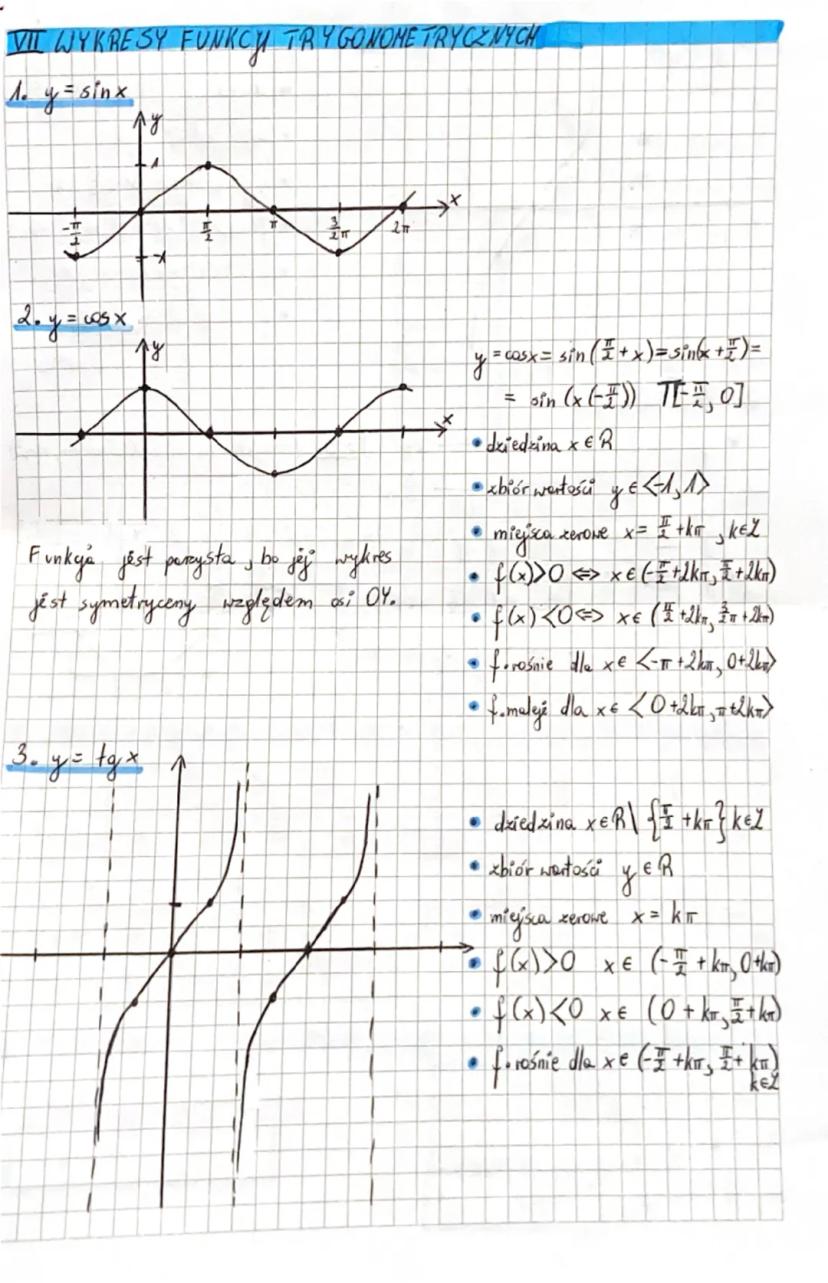 VII WYKRESY FUNKCJI TRYGONOMETRYCZNYCH
1. y = sinx
y
1
x
-π/2 π/2 π 3/2π 2π
-1
2. y = cosx
y
x
y = cosx = sin(π/2 + x) = sin(x + π/2) =
= sin (x (-π/2)) T[-π/2, 0]
• dziedzina x ∈ R
• zbiór wartości y ∈ <-1, 1>
• miejsca zerowe x = π/2 + kπ, k∈Z
• f(x)>0 <=> x ∈ (-π/2+2kπ, π/2+2kπ)
• f(x)<0 <=> x ∈ (π/2+2kπ, 3/2π+2kπ)
• f. rośnie dla x ∈ <-π+2kπ, 0+2kπ>
• f. maleje dla x ∈ <0+2kπ, π+2kπ>
Funkcja jest parzysta, bo jej wykres
jest symetryczny względem osi OY.
3. y = tgx
• dziedzina x∈R \ {π/2 + kπ} k∈Z
• zbiór wartości y ∈ R
• miejsca zerowe x = kπ
• f(x)>0 x ∈ (-π/2 + kπ, 0+kπ)
• f(x)<0 x ∈ (0 + kπ, π/2+kπ)
• f. rośnie dla x ∈ (-π/2+kπ, π/2+kπ)
k∈Z